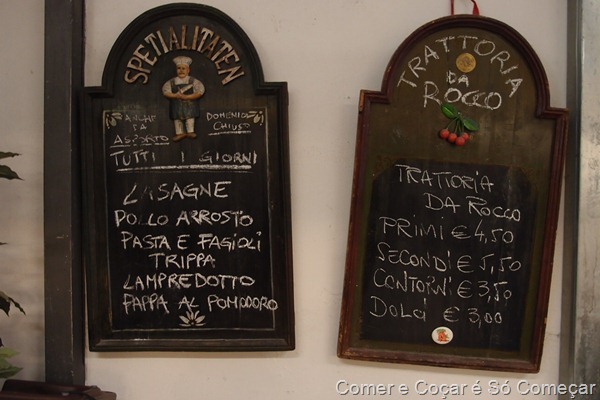 SPETIALITATEN
ANCHE
DA
ASPORTO
DOMENICA
CHIUSO
TUTTI I GIORNI
LASAGNE
POLLO ARROSTO
PASTA E FAGIOLI
TRIPPA
LAMPREDOTTO
PAPPA AL POMODORO
TRATTORIA
DA
ROCCO
TRATTORIA
DA ROCCO
PRIMI € 4,50
SECONDI € 5,50
CONTORNI € 3,50
DOLCI € 3,00
Comer e Coçar é Só Começar